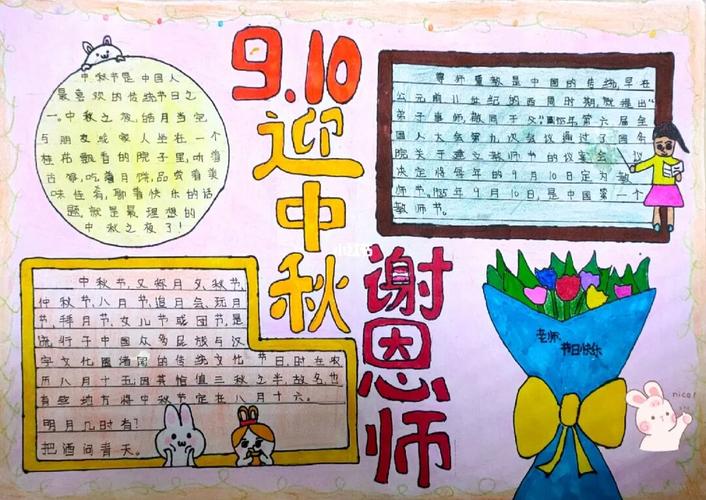 9.10
迎中秋
谢恩师
中秋节是中国人
最喜欢的传统节日之
一。中秋之夜,皓月当空
与朋友或家人坐在一个
桂花飘香的院子里,听着
古筝,吃着月饼,品尝着美
味佳肴,聊着快乐的话
题,就是最理想的
中秋之夜了!
尊师重教是中国的传统,早在
公元前11世纪的西周时期,就提出"
弟子事师,敬同于父"1985年第六届全
国人大会第九次会议通过了国务
院关于建立教师节的议案 会议
决定将每年的9月10日定为教
师节。1985年9月10日,是中国第一个
教师节。
中秋节,又称月夕、秋节、
仲秋节、八月节、追月会、玩月
节、拜月节、女儿节或团节,是
流行于中国众多民族与汉
字文化圈诸国的传统文化节日,时在农
历八月十五;因其恰值三秋之半,故名,也
有些地方将中秋节定在八月十六。
明月几时有?
把酒问青天。
老师
节日快乐
nice!
小红书